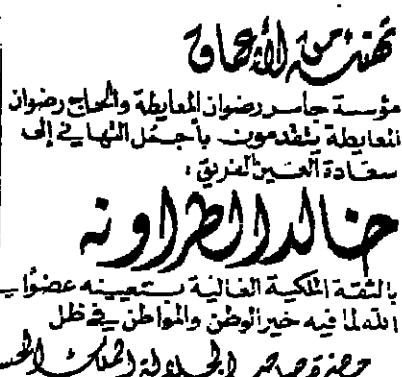 تهنئة من الأعماق
مؤسسة جاسر رضوان المعايطة والحاج رضوان
المعايطة يتقدمون بأجمل التهاني إلى
سعادة العين الفريق :
خالد الطراونه
بالثقة الملكية الغالية بتعيينه عضوًا
الله لما فيه خير الوطن والمواطن في ظل
حضرة صاحب الجلالة الملك